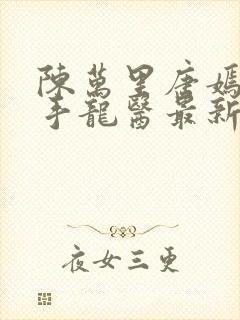 陳萬里唐嫣
手龍醫最新
夜女三更